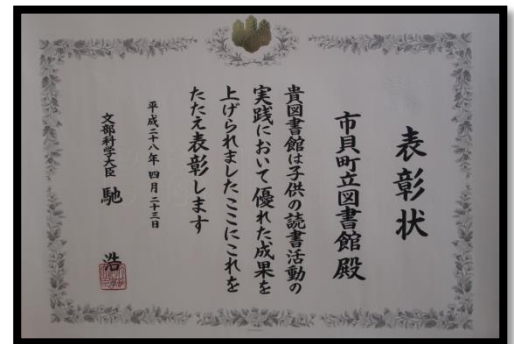 表彰状
市貝町立図書館殿
貴図書館は子供の読書活動の
実践において優れた成果を
上げられましたここにこれを
たたえ表彰します
平成二十八年四月二十三日
文部科学大臣 馳 浩